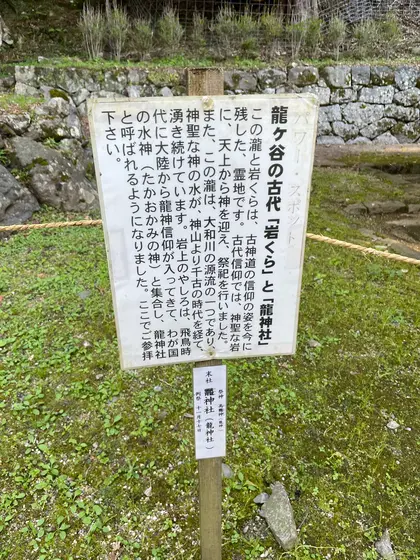 パワースポット
龍ヶ谷の古代「岩くら」と「龍神社」
この瀧と岩くらは、古神道の信仰の姿を今に
残した、霊地です。古代信仰では、神聖な岩
に、天上から神を迎え、祭祀を行いました。
また、この瀧は、大和川の源流の一つであり、
神聖な神の水が、神山より千古の時代を経て、
湧き続けています。岩上のやしろは、飛鳥時
代に大陸から龍神信仰が入ってきて、わが国
の水神（たかおかみの神）と集合し、龍神社
と呼ばれるようになりました。ここでご参拝
下さい。
末社 龗神社（龍神社）
例祭 十一月十七日